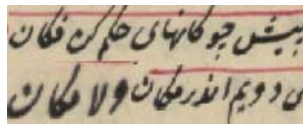 پیش چوکانهای حکم کن فکان
می دویم اندر مکان و لا مکان